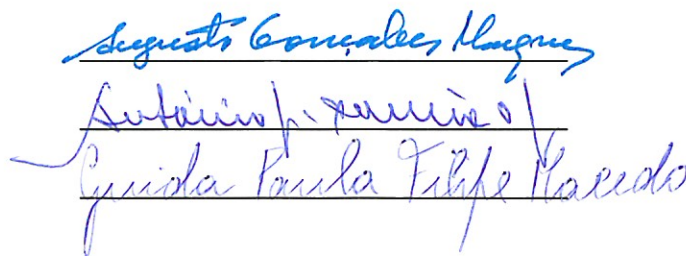 Augusto Gonçalves Marques
António
Guida Paula Filipe Macedo